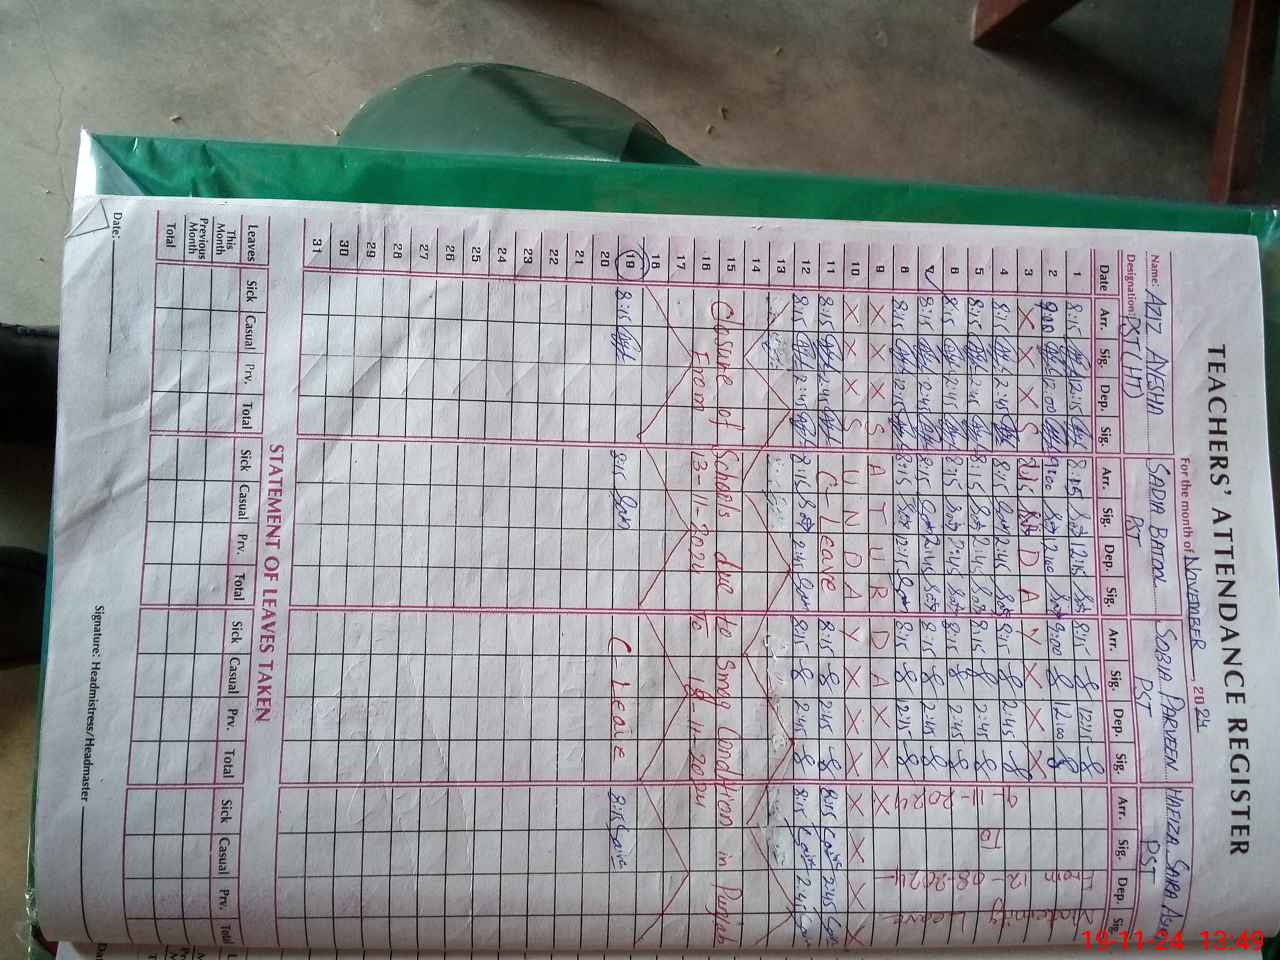 TEACHERS' ATTENDANCE REGISTER
For the month of NOVEMBER, 2024
Name: AZIZ AYESHA SADIA BATOOL SOBIA PARVEEN HAFIZA SAIRA
Designation: PST (HT) PST PST PST
Date Arr. Sig. Dep. Sig. Arr. Sig. Dep. Sig. Arr. Sig. Dep. Sig. Arr. Sig. Dep. Sig.
1 8:15 12:15 8:15 12:15 8:15 12:15
2 9:00 12:00 9:00 12:00 9:00 12:00
3 X X X S U N D A Y X X X
4 8:15 2:45 8:15 2:45 8:15 2:45
5 8:15 2:45 8:15 2:45 8:15 2:45
6 8:15 2:45 8:15 2:45 8:15 2:45
7 8:15 2:45 8:15 2:45 8:15 2:45
8 8:15 12:15 8:15 12:15 8:15 12:15
Maternity Leave
From 12-08-2024
To
9-11-2024
9 X X X S A T U R D A X X X
10 X X X S U N D A Y X X X X X X X
11 8:15 2:45 C-Leave 8:15 2:45 8:15 2:45
12 8:15 2:45 8:15 2:45 8:15 2:45 8:15 2:45
13
14
15 Closure of Schools due to Smog Condition in Punjab
16 From 13-11-2024 To 18-11-2024
17
18
19 8:15 8:15 C-Leave 8:15
20
21
22
23
24
25
26
27
28
29
30
31
STATEMENT OF LEAVES TAKEN
Leaves Sick Casual Prv. Total Sick Casual Prv. Total Sick Casual Prv. Total Sick Casual Prv. Total
This Month
Previous Month
Total
Date:
Signature: Headmistress/Headmaster
19-11-24 13:49